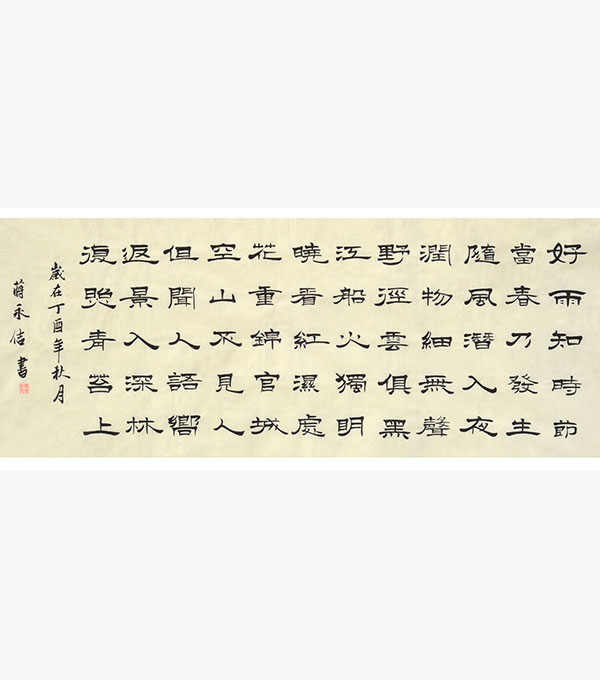 好雨知時節
當春乃發生
隨風潛入夜
潤物細無聲
野徑雲俱黑
江船火獨明
曉看紅濕處
花重錦官城
空山不見人
但聞人語響
返景入深林
復照青苔上
歲在丁酉年秋月
蔣永佶書